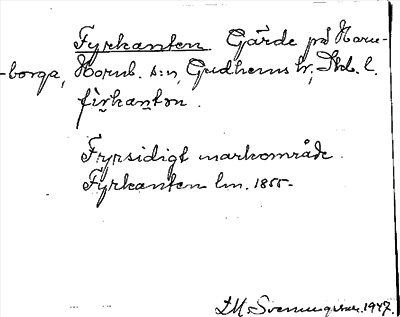 Fyrkanten. Gärde på Horn-
-borga, Hornb. s:n, Gudhems hr, Skb. l.
fìr̥kan̥tən.
Fyrsidigt markområde.
Fyrkanten lm. 1855-
1947.